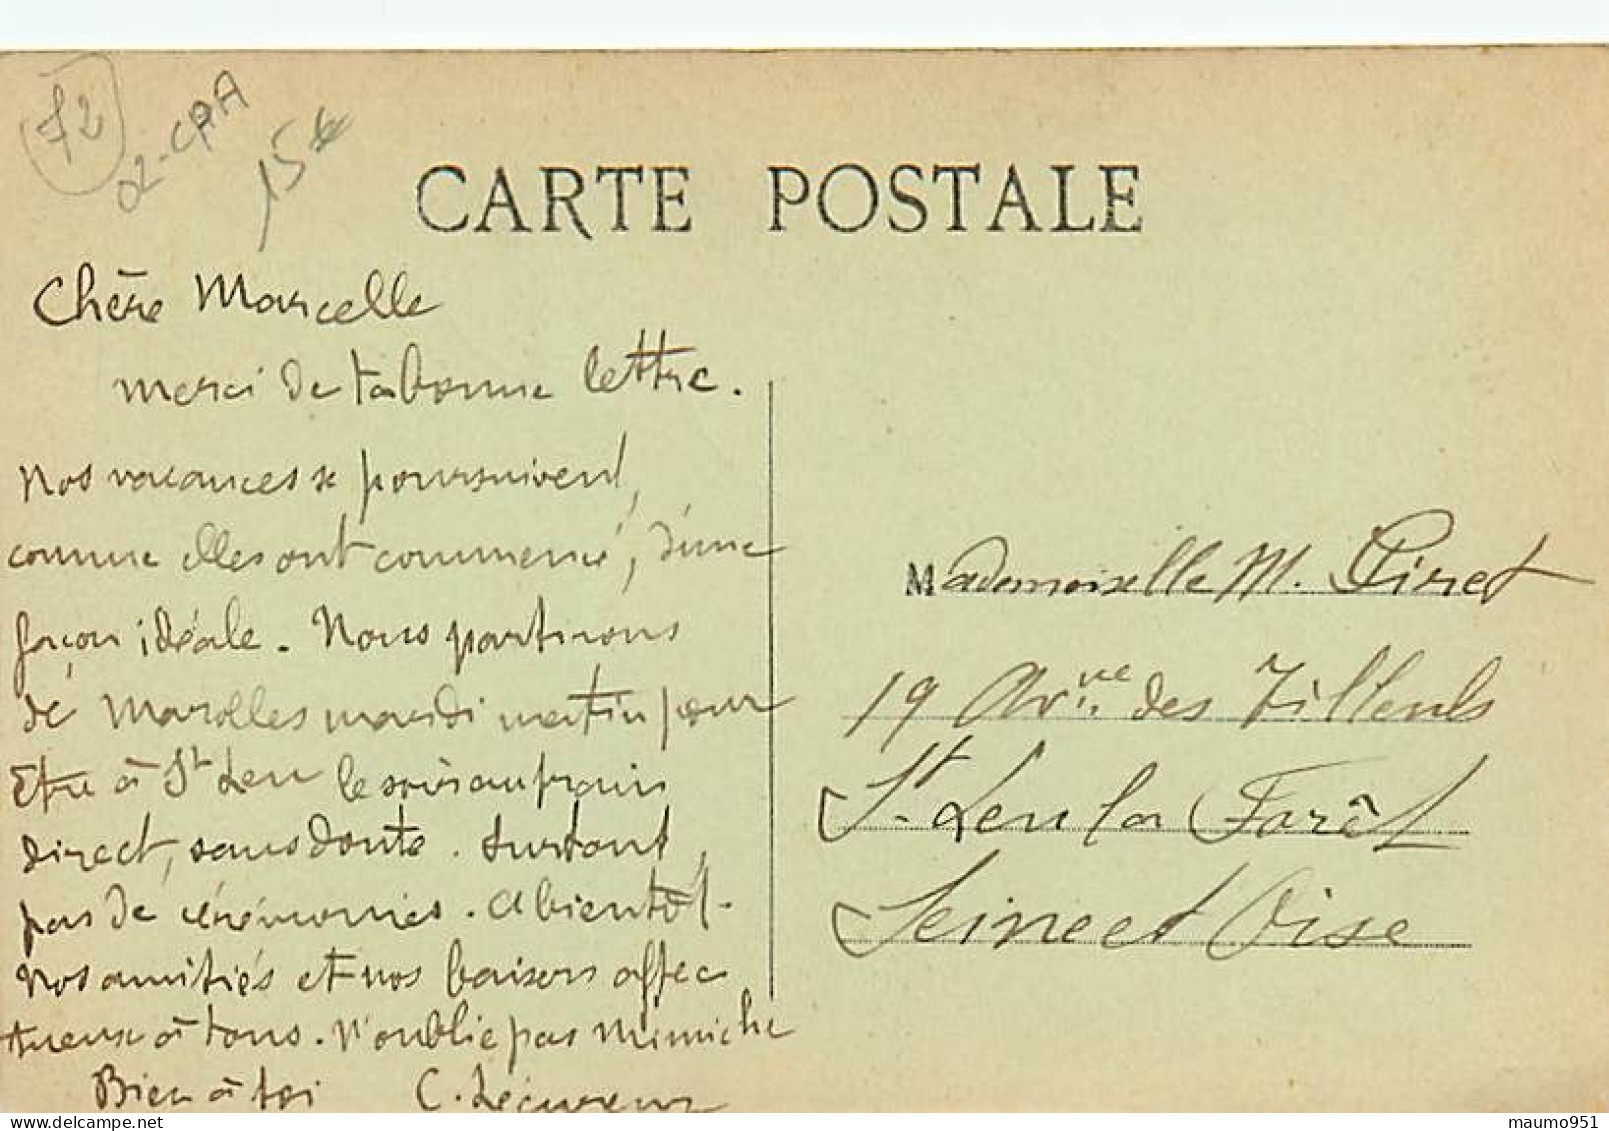 72
02-CPA
15€
CARTE POSTALE
Chère Marcelle
merci de ta bonne lettre.
Nos vacances se poursuivent,
comme elles ont commencé, d'une
façon idéale. Nous partirons
de Marolles mardi matin pour
Etre à St Leu le soir au train
direct, sans doute. Surtout
pas de cérémonies. A bientôt.
Nos amitiés et nos baisers affec
tueux à tous. N'oublie pas Mimiche
Bien à toi C. Lécureux
Mademoiselle M. Piret
19 Avnue des Tilleuls
St Leu la Forêt
Seine et Oise
maumo951